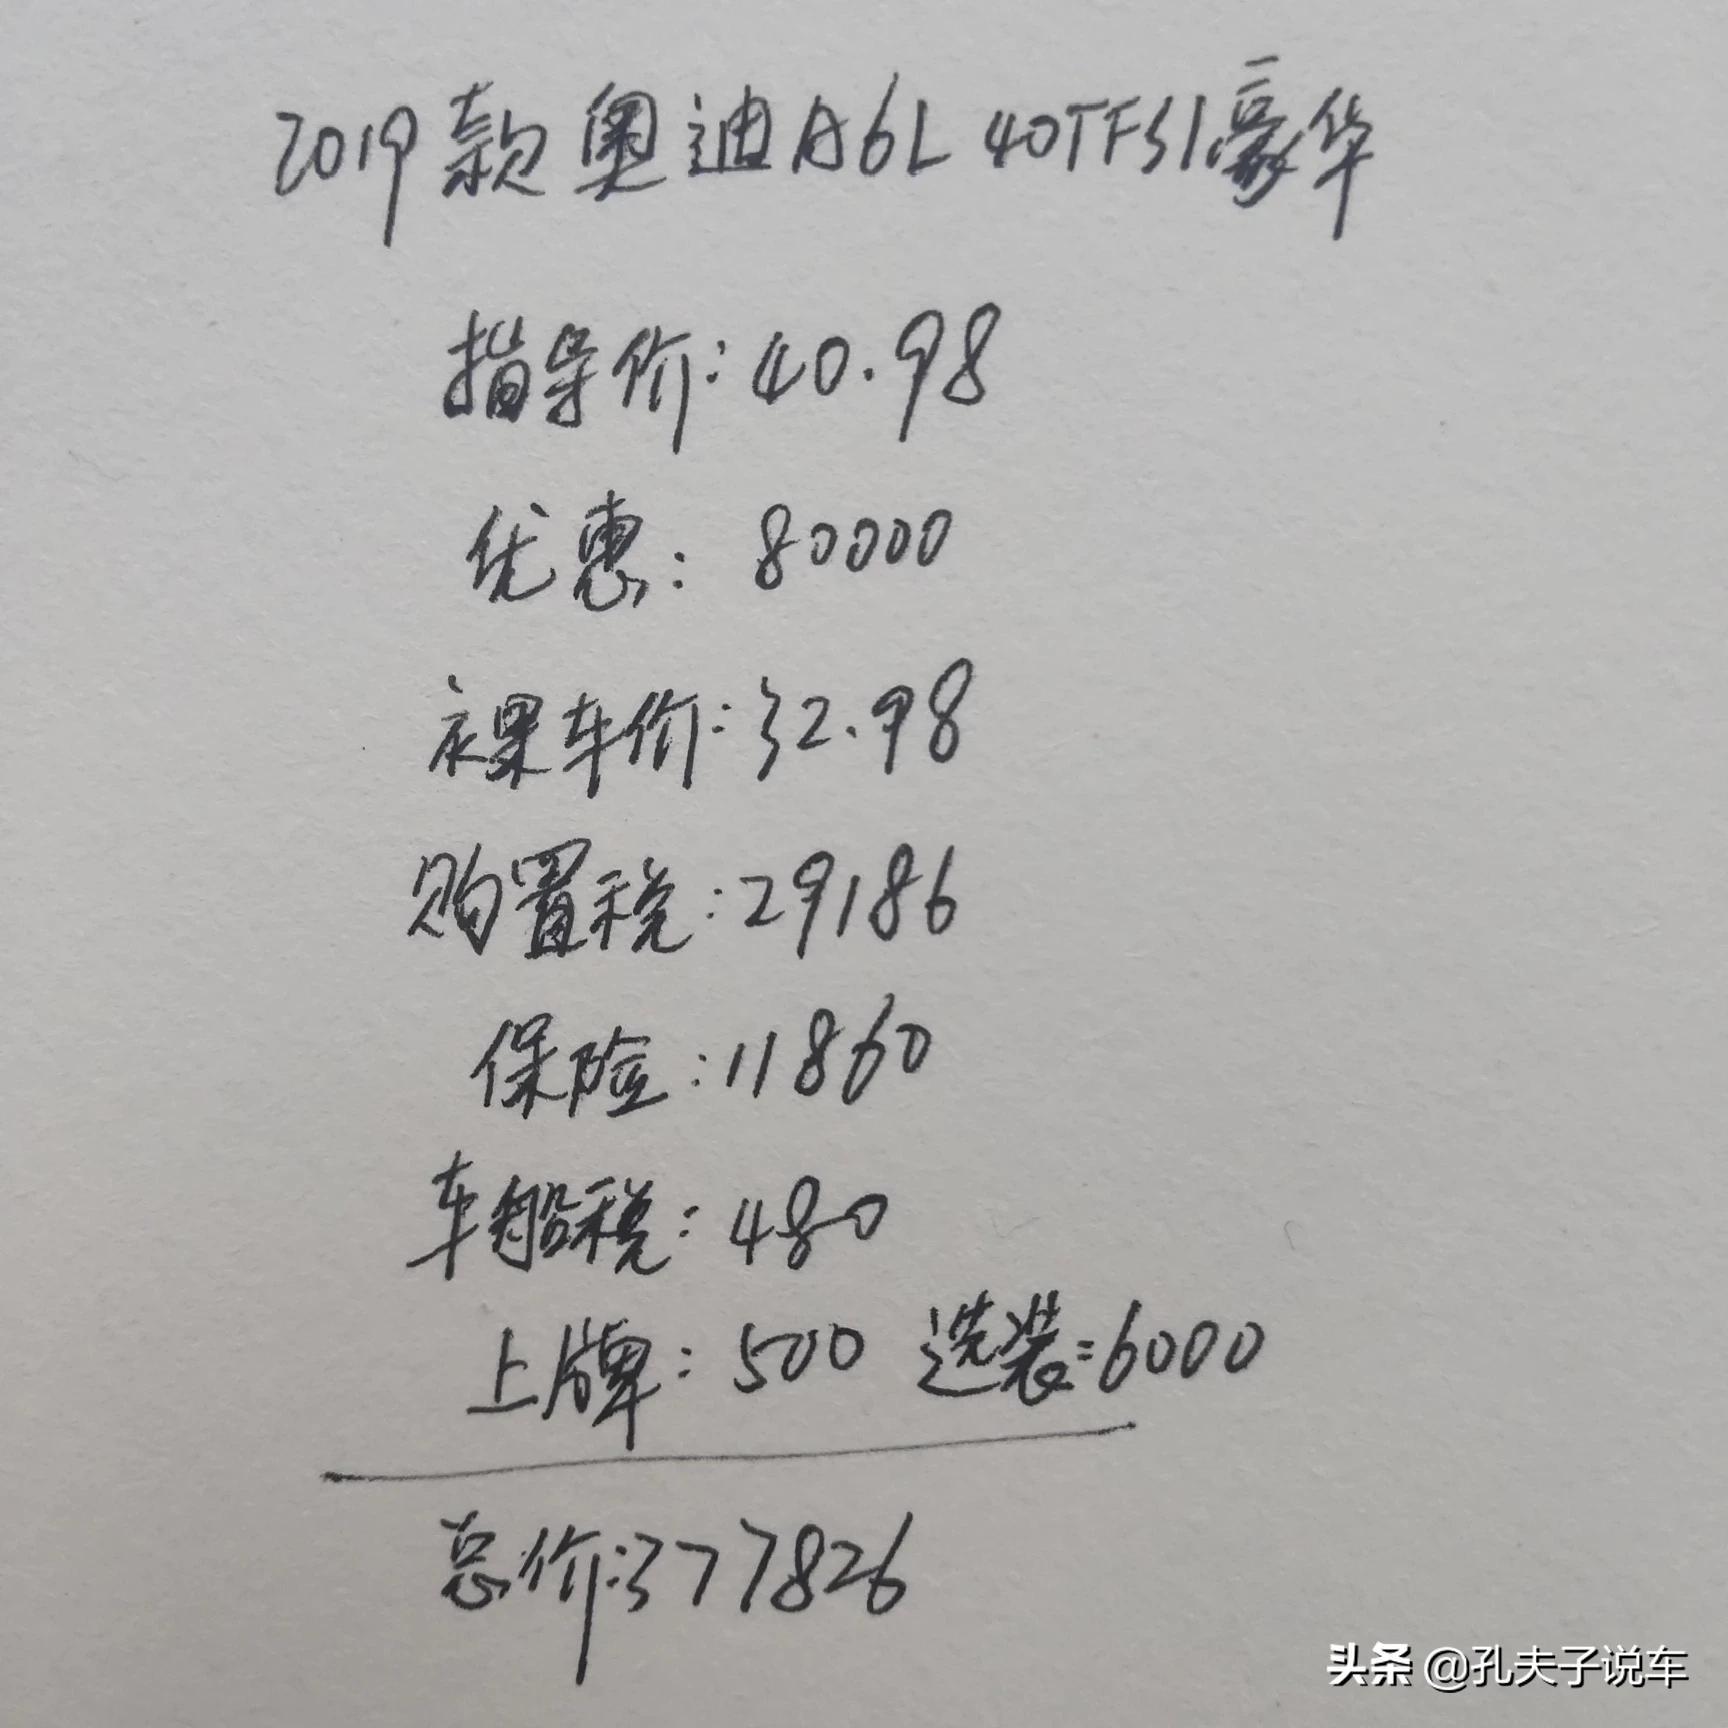 2019款奥迪A6L 40TFSI豪华
指导价:40.98
优惠:80000
裸车价:32.98
购置税:29186
保险:11860
车船税:480
上牌:500 选装:6000
总价:377826
头条 @孔夫子说车